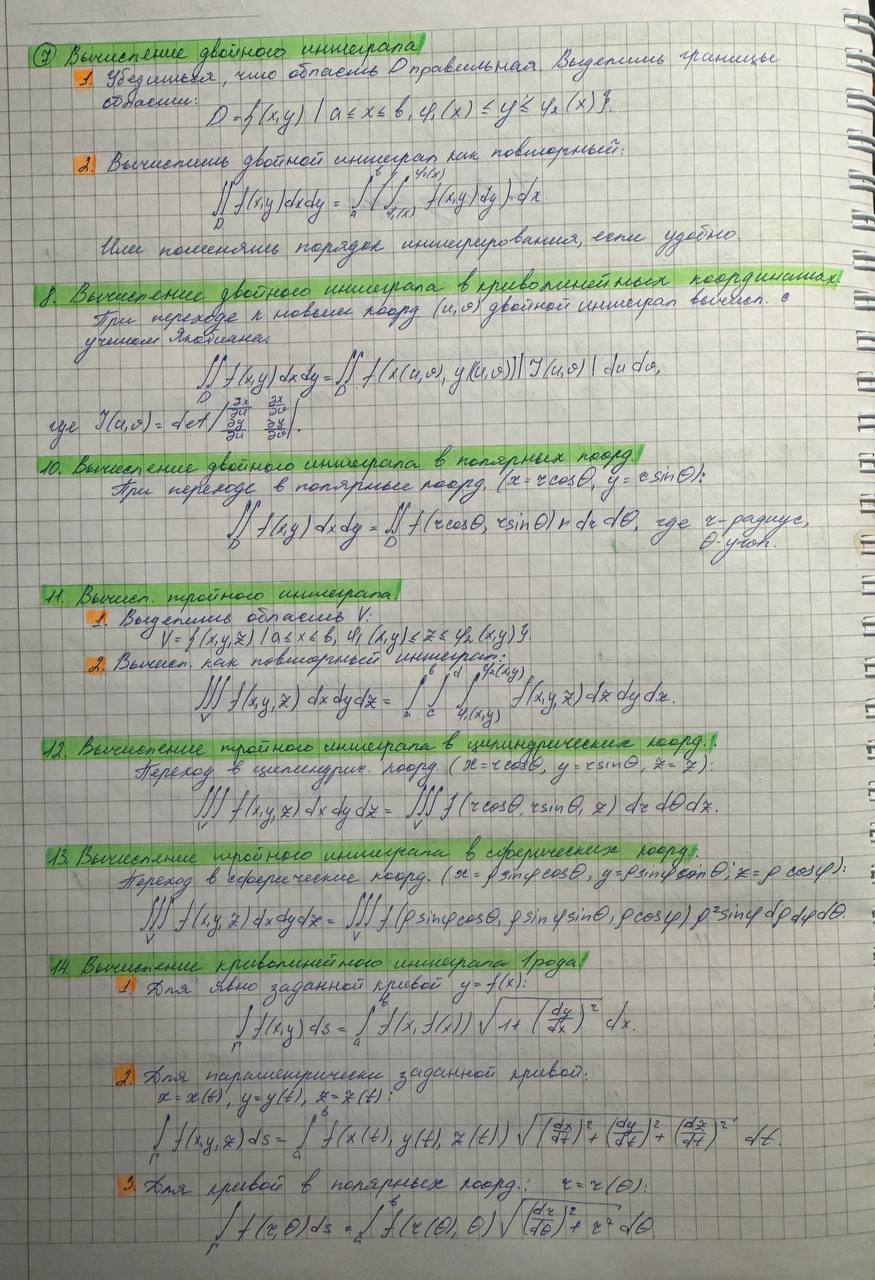 7 Вычисление двойного интеграла
1. Убедиться, что область D правильная. Выделить границы
области:
D = {(x,y) | a ≤ x ≤ b, φ₁(x) ≤ y ≤ φ₂(x)}.
2. Вычислить двойной интеграл как повторный:
∬_D f(x,y)dxdy = ∫_a^b (∫_{φ₁(x)}^{φ₂(x)} f(x,y)dy) dx.
Или поменять порядок интегрирования, если удобно.
8. Вычисление двойного интеграла в криволинейных координатах.
При переходе к новым коорд. (u,v) двойной интеграл вычисл. с
учетом Якобиана:
∬_D f(x,y)dxdy = ∬_D f(x(u,v), y(u,v)) |J(u,v)| du dv,
где J(u,v) = det |∂x/∂u ∂x/∂v ∂y/∂u ∂y/∂v|.
10. Вычисление двойного интеграла в полярных коорд.
При переходе в полярные коорд. (x = r cosθ, y = r sinθ):
∬_D f(x,y)dxdy = ∬_D f(r cosθ, r sinθ) r dr dθ, где r - радиус,
θ - угол.
11. Вычисл. тройного интеграла.
1. Выделить область V:
V = {(x,y,z) | a ≤ x ≤ b, φ₁(x,y) ≤ z ≤ φ₂(x,y)}.
2. Вычисл. как повторный интеграл:
∭_V f(x,y,z) dxdydz = ∫_a^b ∫_c^d ∫_{φ₁(x,y)}^{φ₂(x,y)} f(x,y,z) dz dy dx.
12. Вычисление тройного интеграла в цилиндрических коорд.:
Переход в цилиндрич. коорд. (x = r cosθ, y = r sinθ, z = z):
∭_V f(x,y,z) dxdydz = ∭_V f(r cosθ, r sinθ, z) dr dθ dz.
13. Вычисление тройного интеграла в сферических коорд.:
Переход в сферические коорд. (x = ρ sinφ cosθ, y = ρ sinφ sinθ, z = ρ cosφ):
∭_V f(x,y,z) dxdydz = ∭_V f(ρ sinφ cosθ, ρ sinφ sinθ, ρ cosφ) ρ² sinφ dρ dφ dθ.
14. Вычисление криволинейного интеграла 1 рода
1. Для явно заданной кривой y = f(x):
∫_Γ f(x,y) ds = ∫_a^b f(x, f(x)) √(1 + (dy/dx)²) dx.
2. Для параметрически заданной кривой:
x = x(t), y = y(t), z = z(t):
∫_Γ f(x,y,z) ds = ∫_a^b f(x(t), y(t), z(t)) √((dx/dt)² + (dy/dt)² + (dz/dt)²) dt.
3. Для кривой в полярных коорд.: r = r(θ):
∫_Γ f(r,θ) ds = ∫_a^b f(r(θ), θ) √((dr/dθ)² + r²) dθ